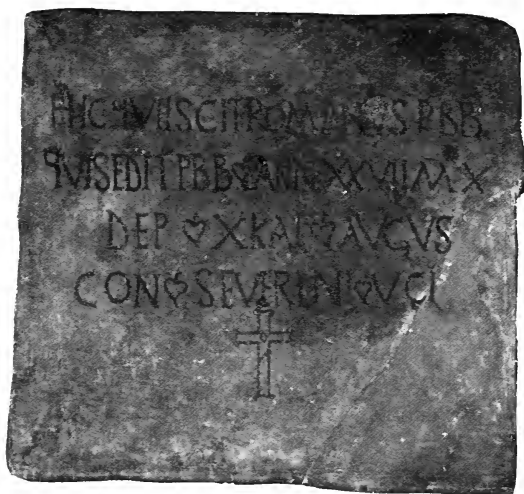 HIC QVIISCIT ROMANVS PBB
QVI SEDIT PBB ❦ ANN XXVII M X
DEP ❦ X KAL ❦ AVGVS
CON ❦ SEVERINI ❦ V CL